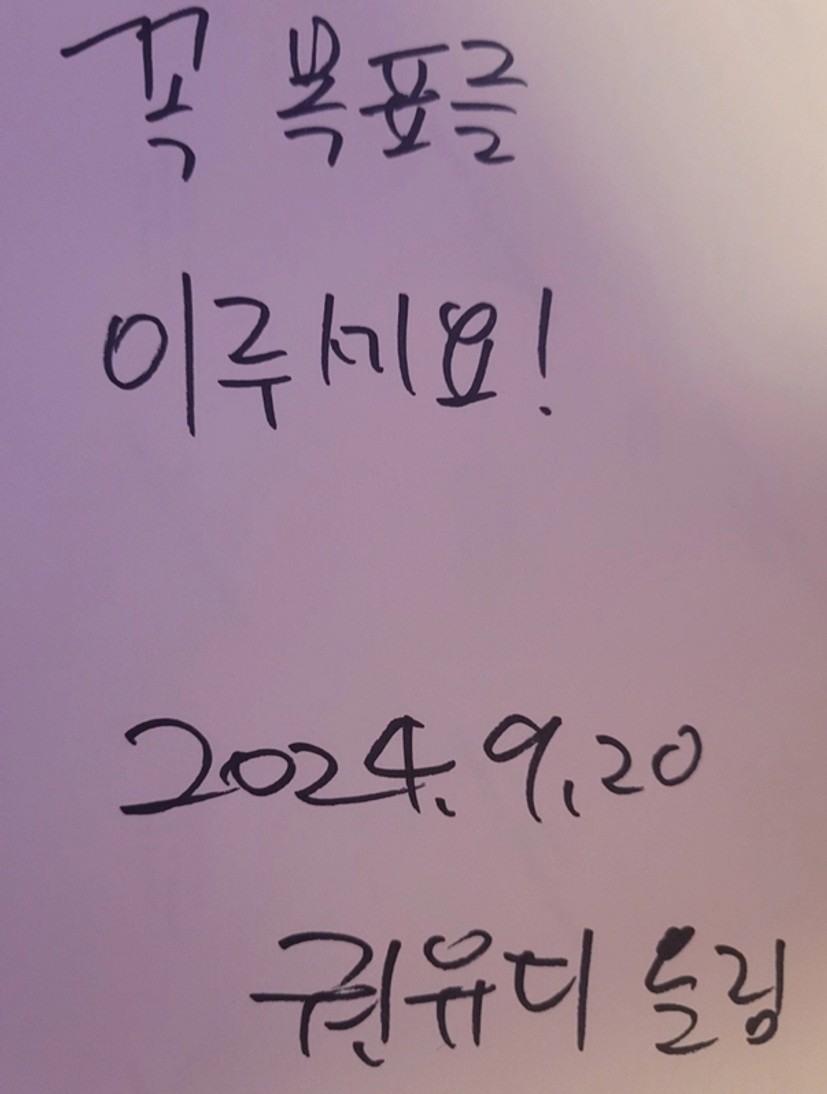 꼭 목표를
이루세요!
2024. 9. 20
권유디 드림